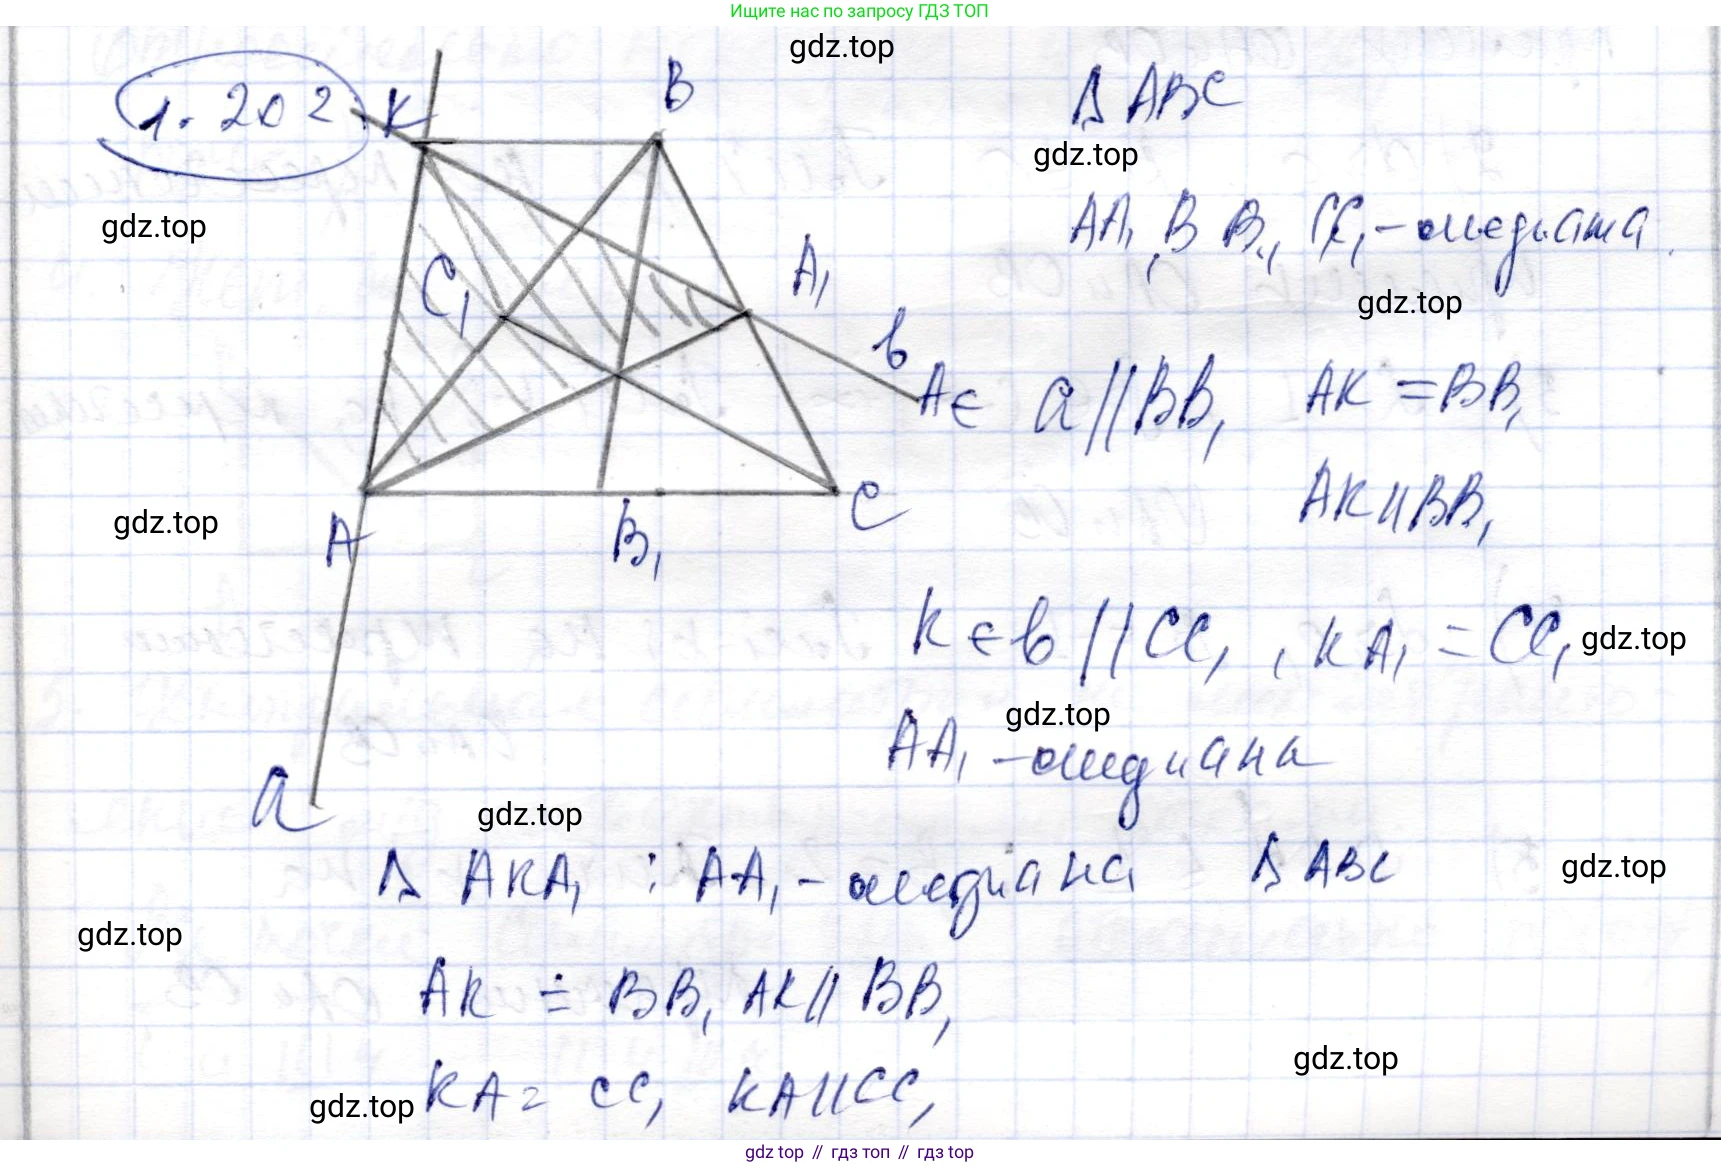 Ищите нас по запросу ГДЗ ТОП
gdz.top
1.202. K B
Δ ABC
gdz.top
gdz.top
AA₁, BB₁, CC₁ – медиана.
C₁ A₁
gdz.top
в
A ∈ a // BB₁ AK = BB₁
AK // BB₁
gdz.top
A B₁ C
K ∈ в // CC₁, KA₁ = CC₁
gdz.top
gdz.top
AA₁ – медиана
a
gdz.top
Δ AKA₁ : AA₁ – медиана Δ ABC
gdz.top
gdz.top
AK = BB₁ AK // BB₁
gdz.top
KA = CC₁ KA // CC₁
gdz.top
gdz top // гдз топ // гдз top